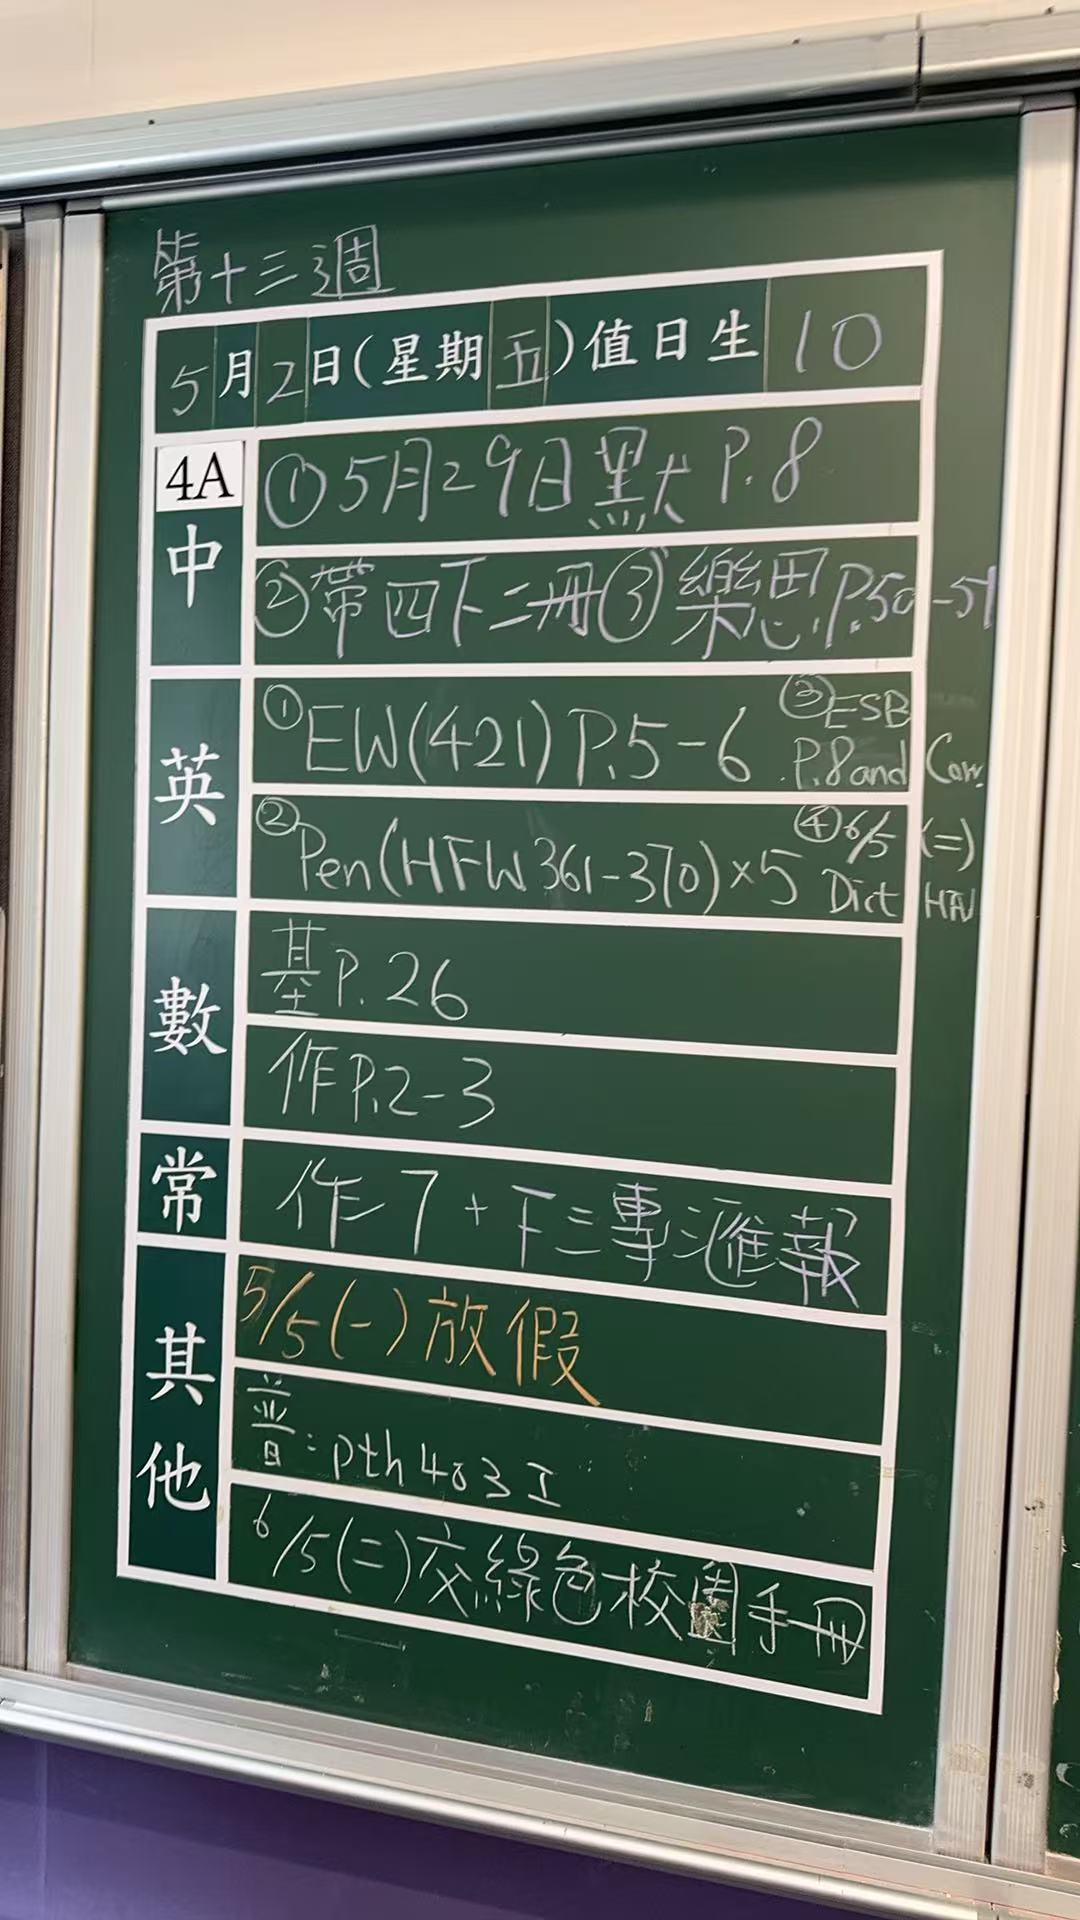 第十三週
5月2日(星期五)值日生 10
4A
中
①5月29日默 P.8
②帶四下二冊③樂思P.50-51
英
①EW(421) P.5-6 ③ESB P.8 and Corr.
②Pen(HFW 361-370)×5 ④6/5 (二) Dict
數
基P.26
作P.2-3
常
作7+下三專滙報
其他
5/5(一)放假
普:pth403I
6/5(二)交綠色校園手冊